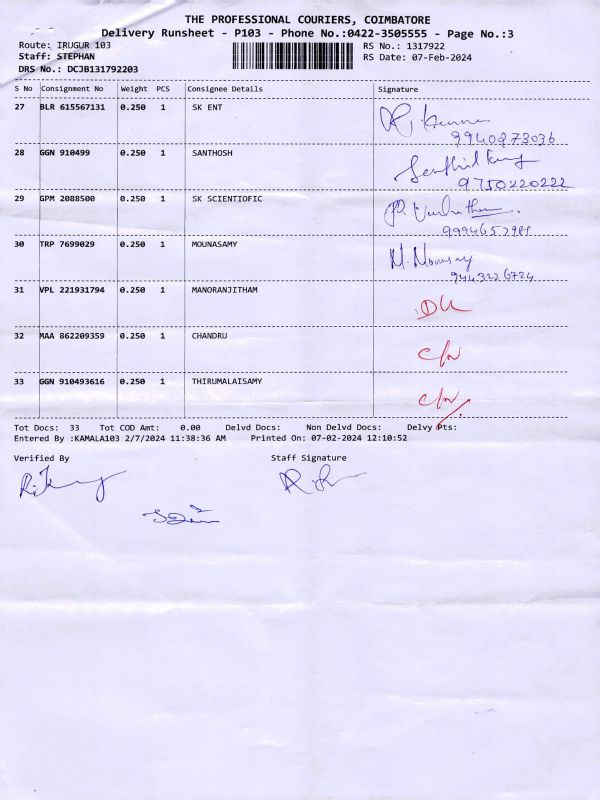 THE PROFESSIONAL COURIERS, COIMBATORE
Delivery Runsheet - P103 - Phone No.:0422-3505555 - Page No.:3
Route: IRUGUR 103 RS No.: 1317922
Staff: STEPHAN RS Date: 07-Feb-2024
DRS No.: DCJB131792203
S No Consignment No Weight PCS Consignee Details Signature
27 BLR 615567131 0.250 1 SK ENT
9940973036
28 GGN 910499 0.250 1 SANTHOSH Senthil Kumar
9750220222
29 GPM 2088500 0.250 1 SK SCIENTIOFIC
30 TRP 7699029 0.250 1 MOUNASAMY M. Mounsay
9443226724
31 VPL 221931794 0.250 1 MANORANJITHAM
32 MAA 862209359 0.250 1 CHANDRU
33 GGN 910493616 0.250 1 THIRUMALAISAMY
Tot Docs: 33 Tot COD Amt: 0.00 Delvd Docs: Non Delvd Docs: Delvy Pts:
Entered By :KAMALA103 2/7/2024 11:38:36 AM Printed On: 07-02-2024 12:10:52
Verified By Staff Signature